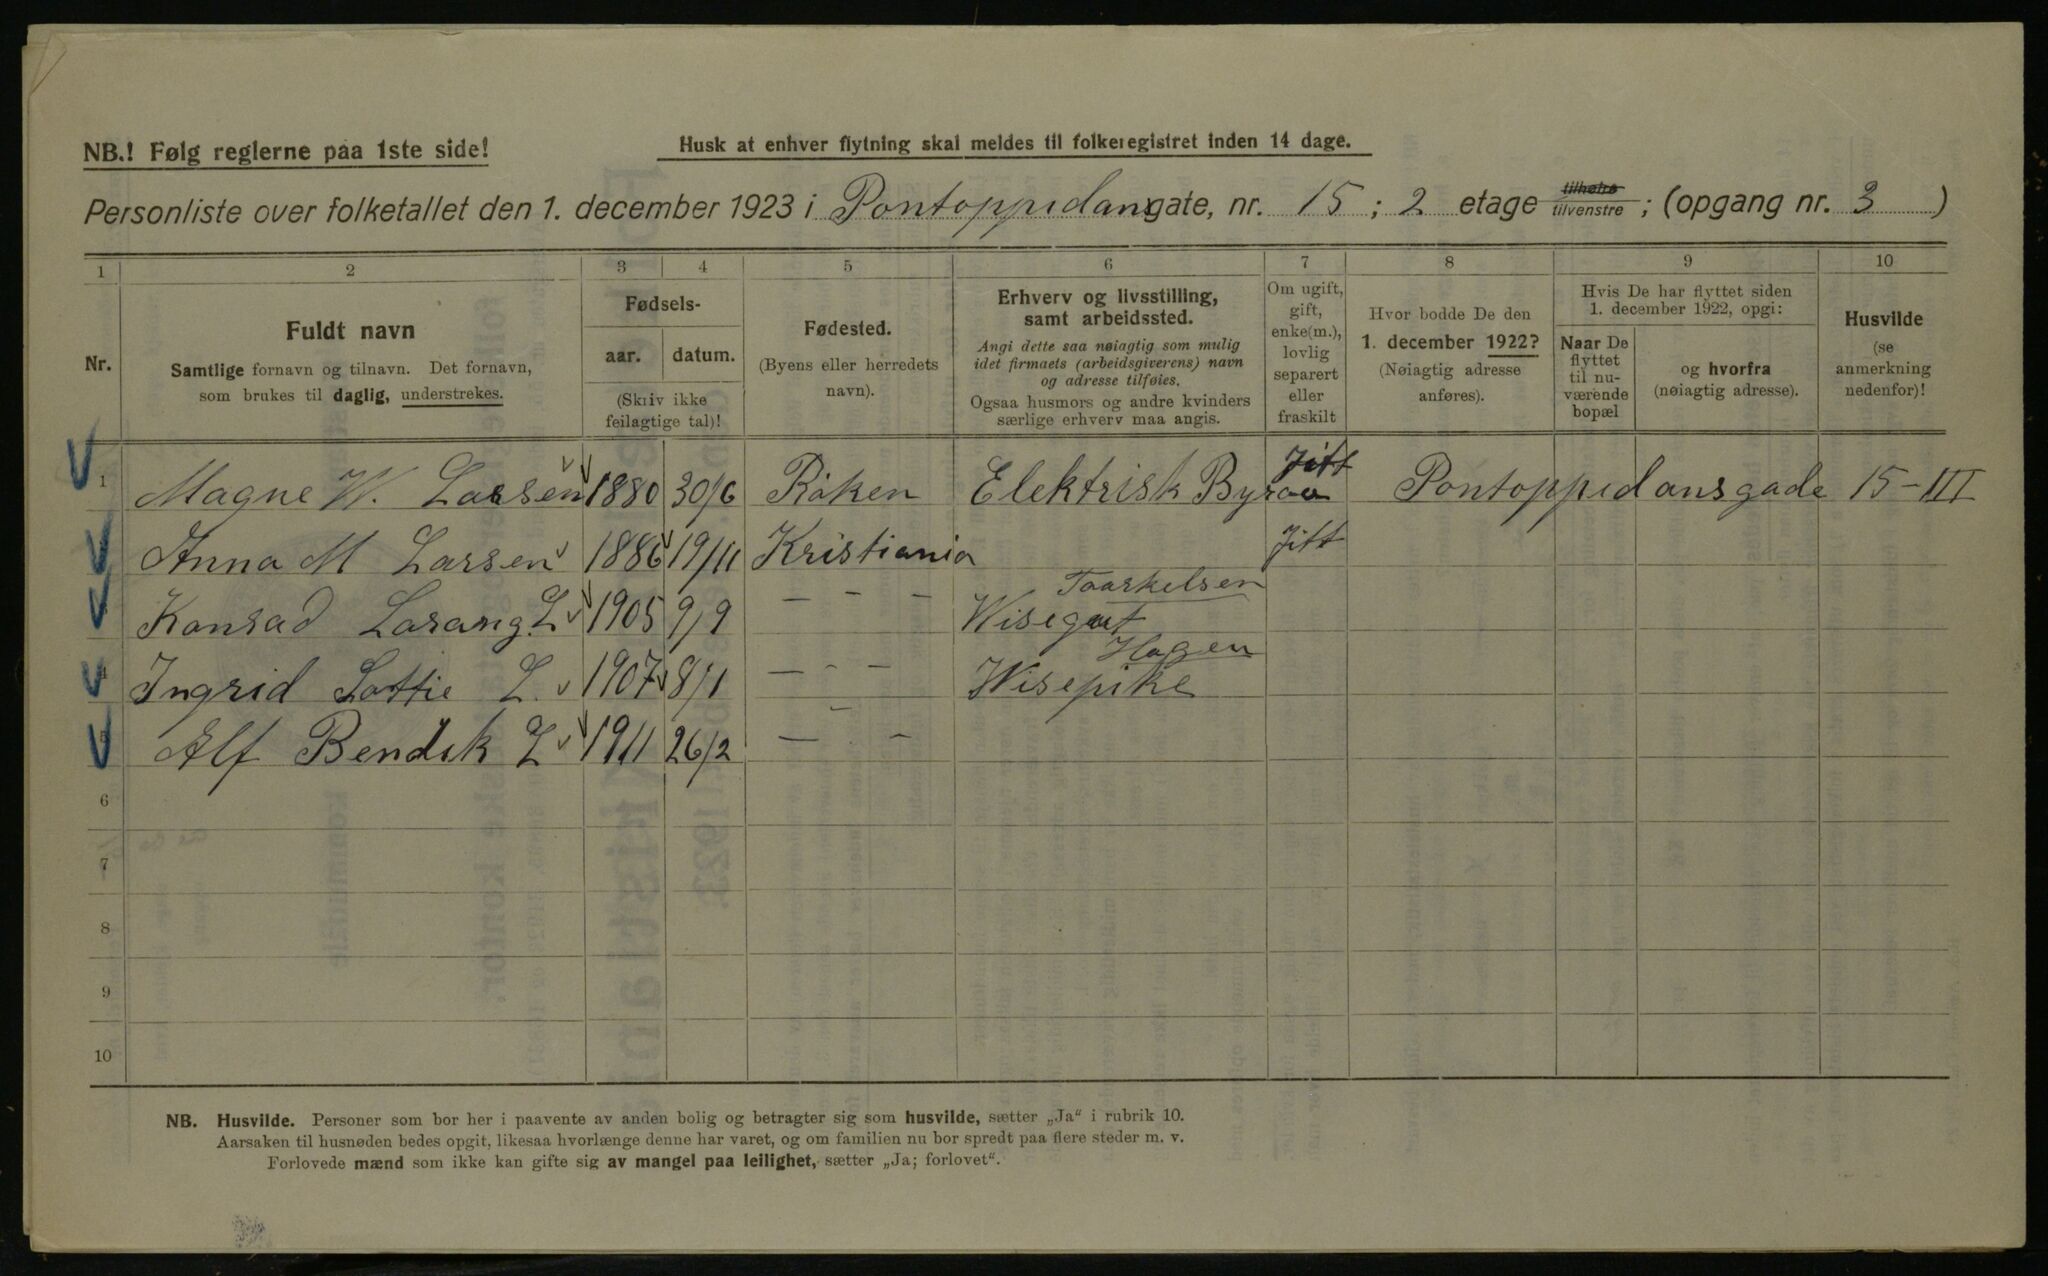 NB.! Følg reglerne paa 1ste side!
Husk at enhver flytning skal meldes til folkeregistret inden 14 dage.
Personliste over folketallet den 1. december 1923 i Pontoppidansgate, nr. 15; 2 etage tilhøire tilvenstre; (opgang nr. 3)
1 2 3 4 5 6 7 8 9 10
Nr.
Fuldt navn
Samtlige fornavn og tilnavn. Det fornavn,
som brukes til daglig, understrekes.
Fødsels-
aar. datum.
(Skriv ikke
feilagtige tal)!
Fødested.
(Byens eller herredets
navn).
Erhverv og livsstilling,
samt arbeidssted.
Angi dette saa nøiagtig som mulig
idet firmaets (arbeidsgiverens) navn
og adresse tilføies.
Ogsaa husmors og andre kvinders
særlige erhverv maa angis.
Om ugift,
gift,
enke(m.),
lovlig
separert
eller
fraskilt
Hvor bodde De den
1. december 1922?
(Nøiagtig adresse
anføres).
Hvis De har flyttet siden
1. december 1922, opgi:
Naar De
flyttet
til nu-
værende
bopæl
og hvorfra
(nøiagtig adresse).
Husvilde
(se
anmerkning
nedenfor)!
1 Magne W. Larsen 1880 30/6 Röken Elektrisk Byraa Jift Pontoppidansgade 15-III
Anna M Larsen 1886 19/11 Kristiania Jift
Taarkelsen
Konrad Lorang L 1905 9/9 — - - Wisegut
Hagen
4 Ingrid Lottie L. 1907 8/1 — - - Wisepike
5 Alf Bendik L 1911 26/2 — - -
6
7
8
9
10
NB. Husvilde. Personer som bor her i paavente av anden bolig og betragter sig som husvilde, sætter „Ja“ i rubrik 10.
Aarsaken til husnøden bedes opgit, likesaa hvorlænge denne har varet, og om familien nu bor spredt paa flere steder m. v.
Forlovede mænd som ikke kan gifte sig av mangel paa leilighet, sætter „Ja; forlovet“.